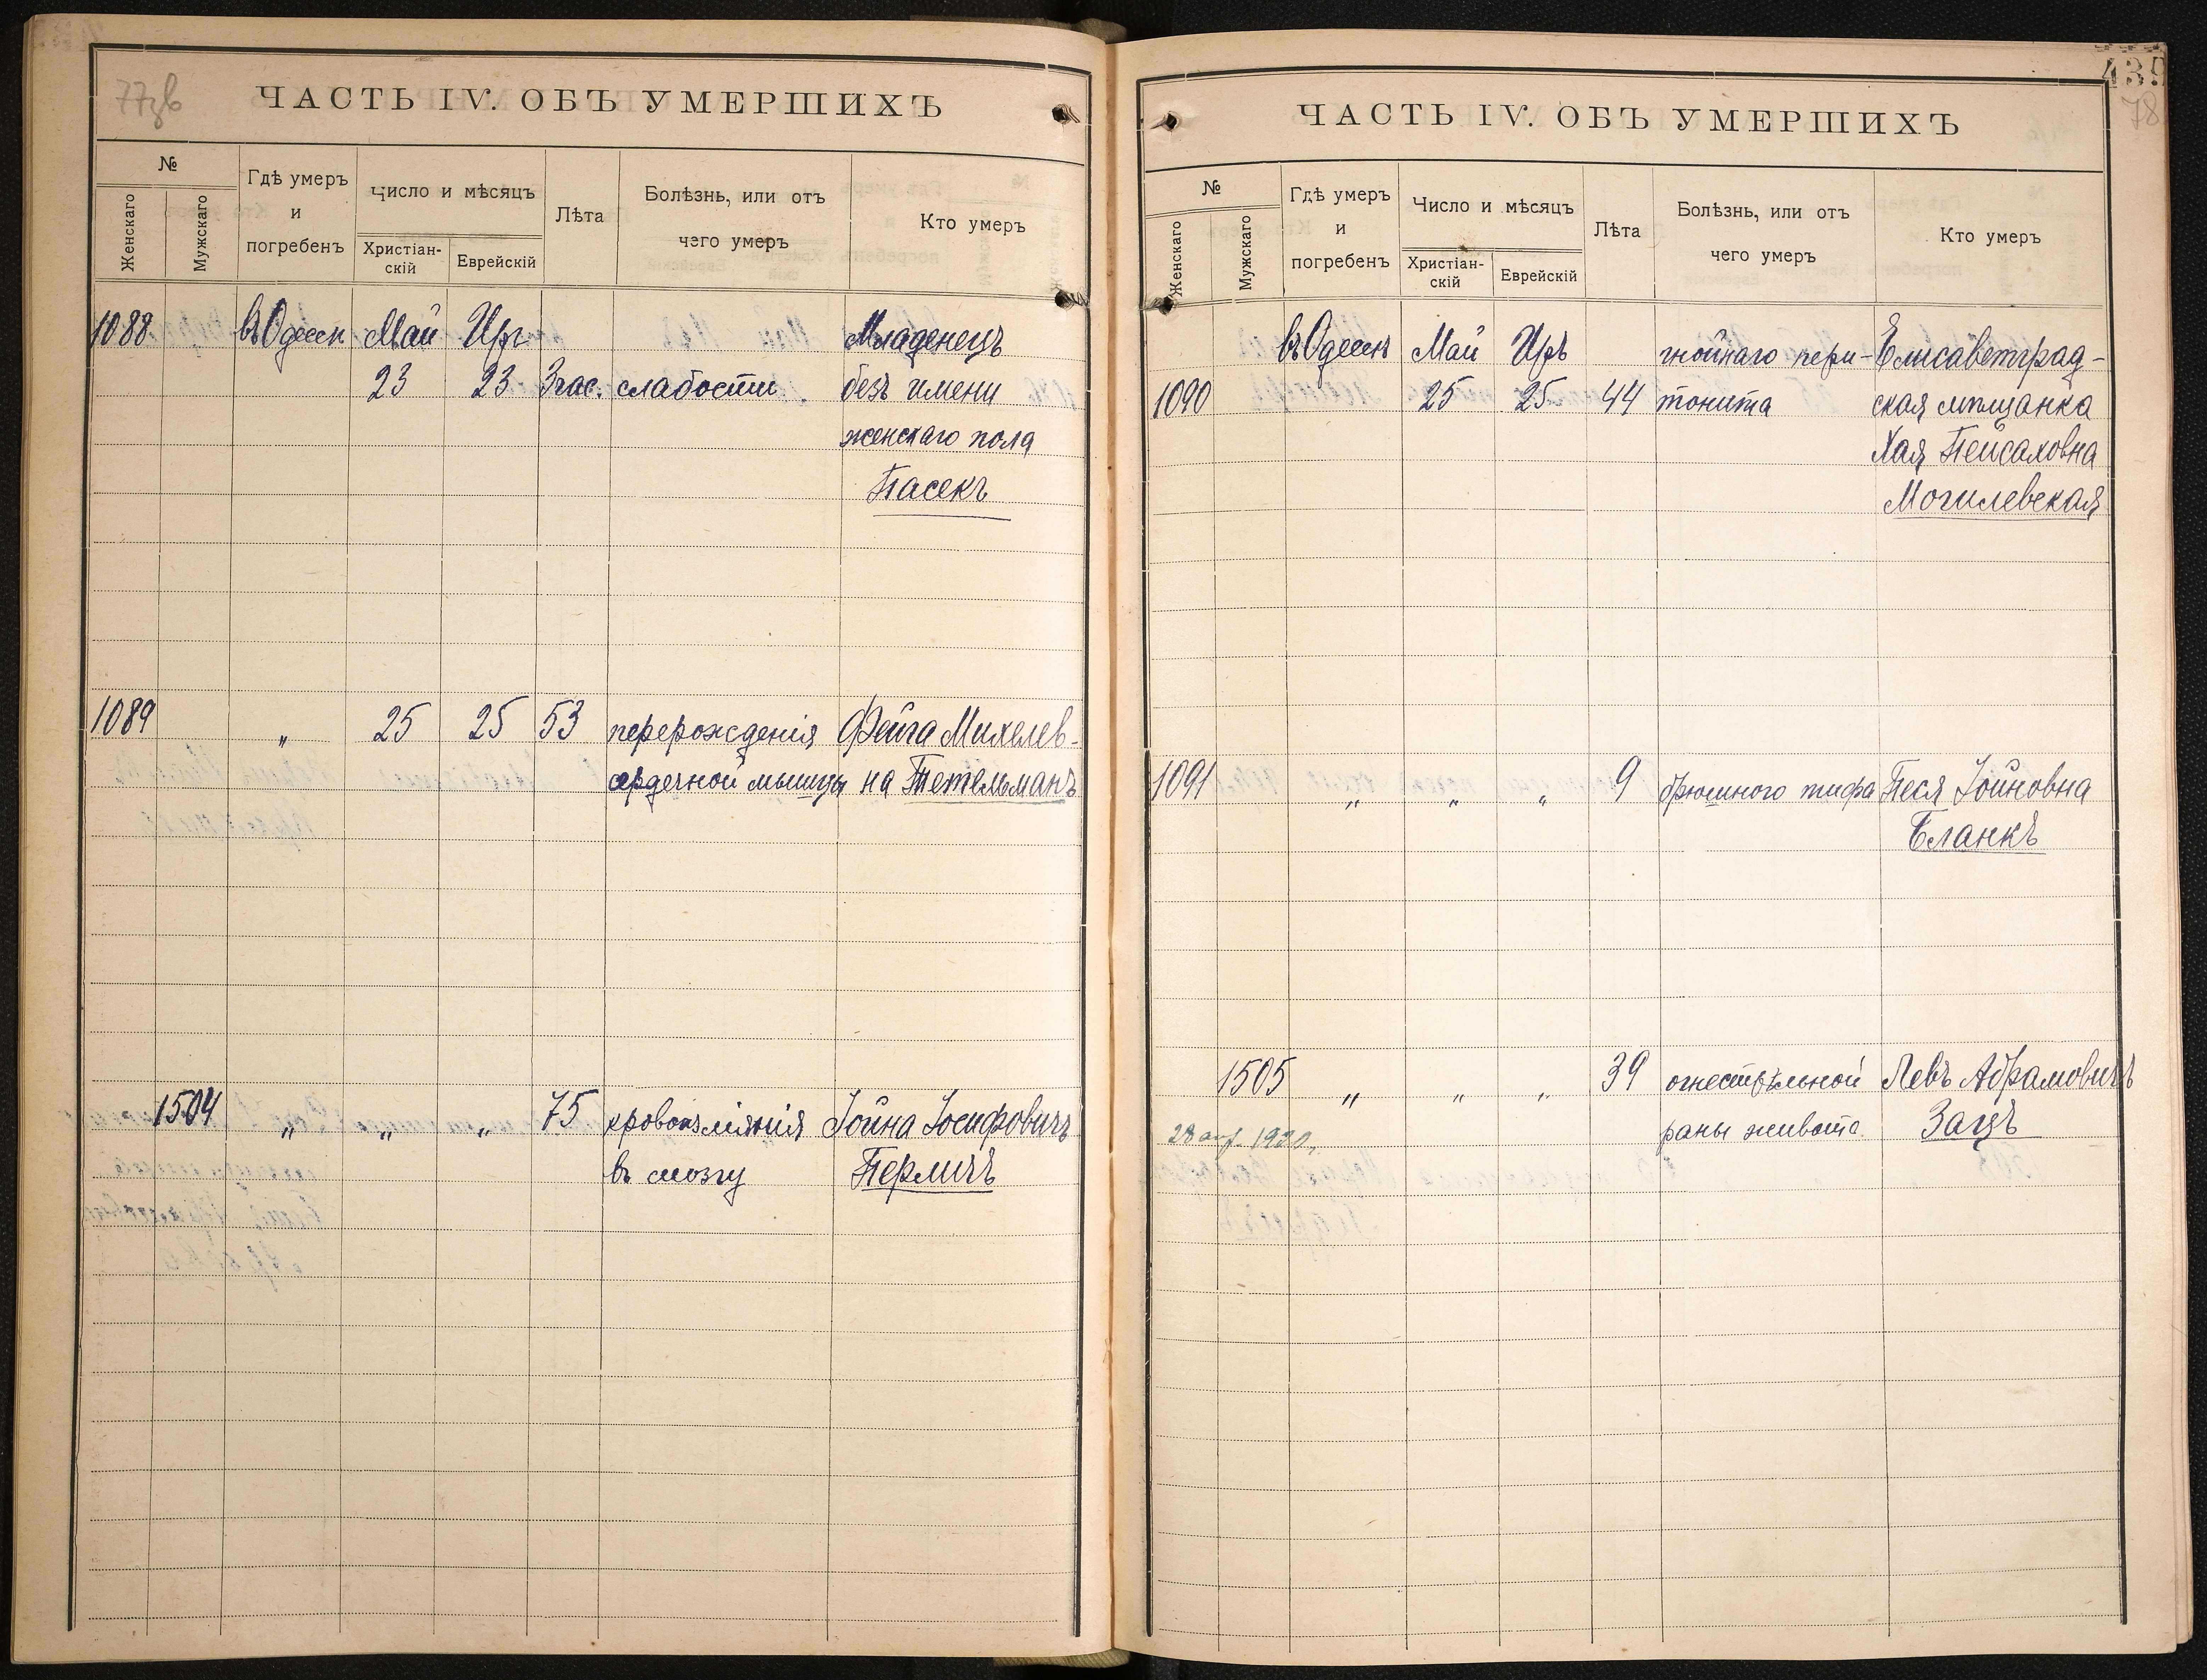 77зв
ЧАСТЬ IV. ОБЪ УМЕРШИХЪ
№
Женскаго
Мужскаго
Гдѣ умеръ
и
погребенъ
Число и мѣсяцъ
Христіан-
скій
Еврейскій
Лѣта
Болѣзнь, или отъ
чего умеръ
Кто умеръ
1088 въ Одессѣ Май Иръ Младенецъ
23 23 3 час. слабости безъ имени
женскаго пола
Пасекъ
1089 „ 25 25 53 перерожденія Фейга Михелев-
сердечной мышцы на Тетельманъ
1504 „ „ „ 75 кровоизліянія Іойна Іосифовичъ
въ мозгу Перличъ
439
78
ЧАСТЬ IV. ОБЪ УМЕРШИХЪ
№
Женскаго
Мужскаго
Гдѣ умеръ
и
погребенъ
Число и мѣсяцъ
Христіан-
скій
Еврейскій
Лѣта
Болѣзнь, или отъ
чего умеръ
Кто умеръ
въ Одессѣ Май Иръ гнойнаго пери- Елисаветград-
1090 25 25 44 тонита ская мѣщанка
Хая Пейсаховна
Могилевская
1091 „ „ „ 9 брюшного тифа Песя Іойновна
Бланкъ
1505 „ „ „ 39 огнестрѣльной Левъ Абрамовичъ
28 апр. 1920 раны живота Зацъ